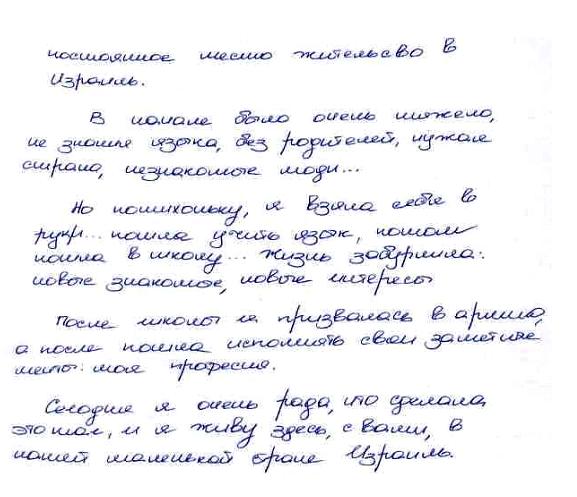 постоянное место жительсво в
Израиль.
В начале было очень тяжело,
не зная языка, без родителей, чужая
страна, незнакомые люди...
Но потихоньку, я взяла себя в
руки... пошла учить язык, потом
пошла в школу... жизнь забурлила:
новые знакомые, новые интересы
После школы я призвалась в армию,
а после пошла исполнять свои
мечты: моя професия.
Сегодня я очень рада, что сделала
это шаг, и я живу здесь, с вами, в
нашей маленькой стране Израиль.